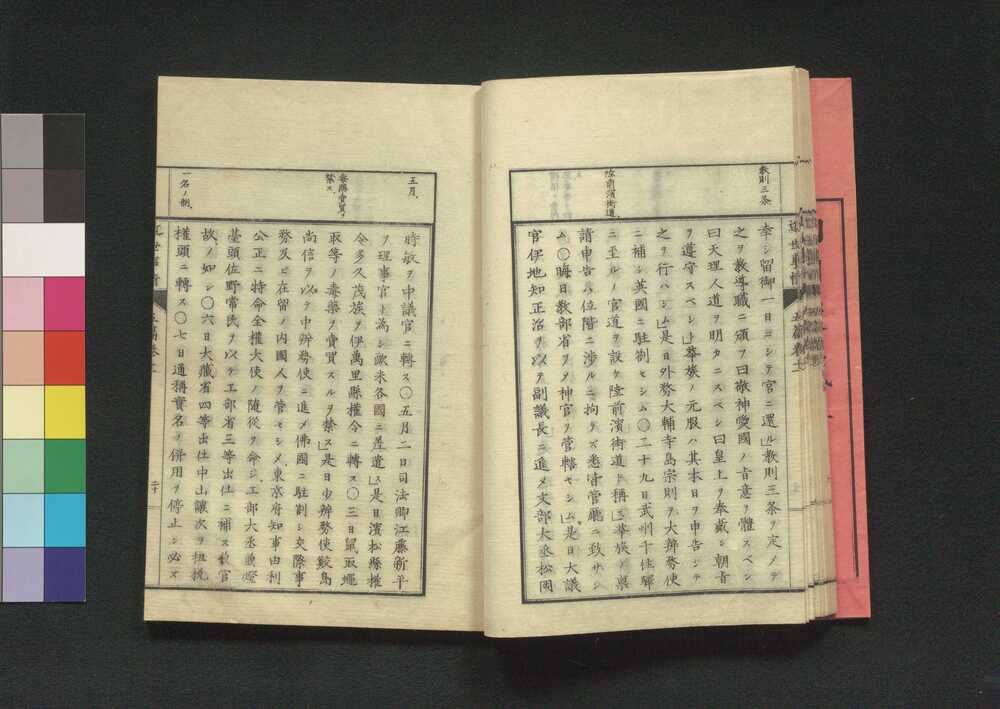 教則三条
陸前濱街道、
幸シ留御一日ニシテ官ニ還ル教則三条ヲ定メテ
之ヲ教導職ニ頒ツ曰敬神愛國ノ旨意ヲ體スベシ
曰天理人道ヲ明カニスベシ曰皇上ヲ奉戴シ朝旨
ヲ遵守スベシ」華族ノ元服ハ其本日ヲ申告シテ
之ヲ行ハシム」是日外務大輔寺島宗則ヲ大辨務使
ニ補シ英國ニ駐劄セシム〇二十九日武州千住驛
ニ至ルノ官道ヲ設ケ陸前濱街道ト稱ス」華族ノ縣
請申告ハ位階ニ涉ルニ拘ラズ悉皆管廳ニ致サシ
ム〇晦日教部省ヲメ神官ヲ管轄セシム」是日大議
官伊地知正治ヲ以テ副議長ニ進メ文部大丞松岡
五月、
毒藥賣買ヲ
禁ス
一名ノ制、
時敏ヲ中議官ニ轉ス〇五月二日司法卿江藤新平
ヲ理事官ト為シ歐米各國ニ差遣ス」是日濱松縣權
令多久茂族ヲ伊萬里縣權令ニ轉ス〇三日鼠取蠅
取等ノ毒藥ヲ賣買スルヲ禁ス」是日少辨務使鮫島
尚信ヲ以テ中辨務使ニ進メ佛國ニ駐劄シ交際事
務及ビ在留ノ内國人ヲ管セシメ東京府知事由利
公正ニ特命全權大使ノ隨從ヲ命シ工部大丞兼燈
臺頭佐野常民ヲ以テ工部省三等出仕ニ補ス教官
故ノ如シ〇六日大藏省四等出仕中山讓次ヲ租税
權頭ニ轉ス〇七日通稱實名ノ併用ヲ停止シ必ズ
二十